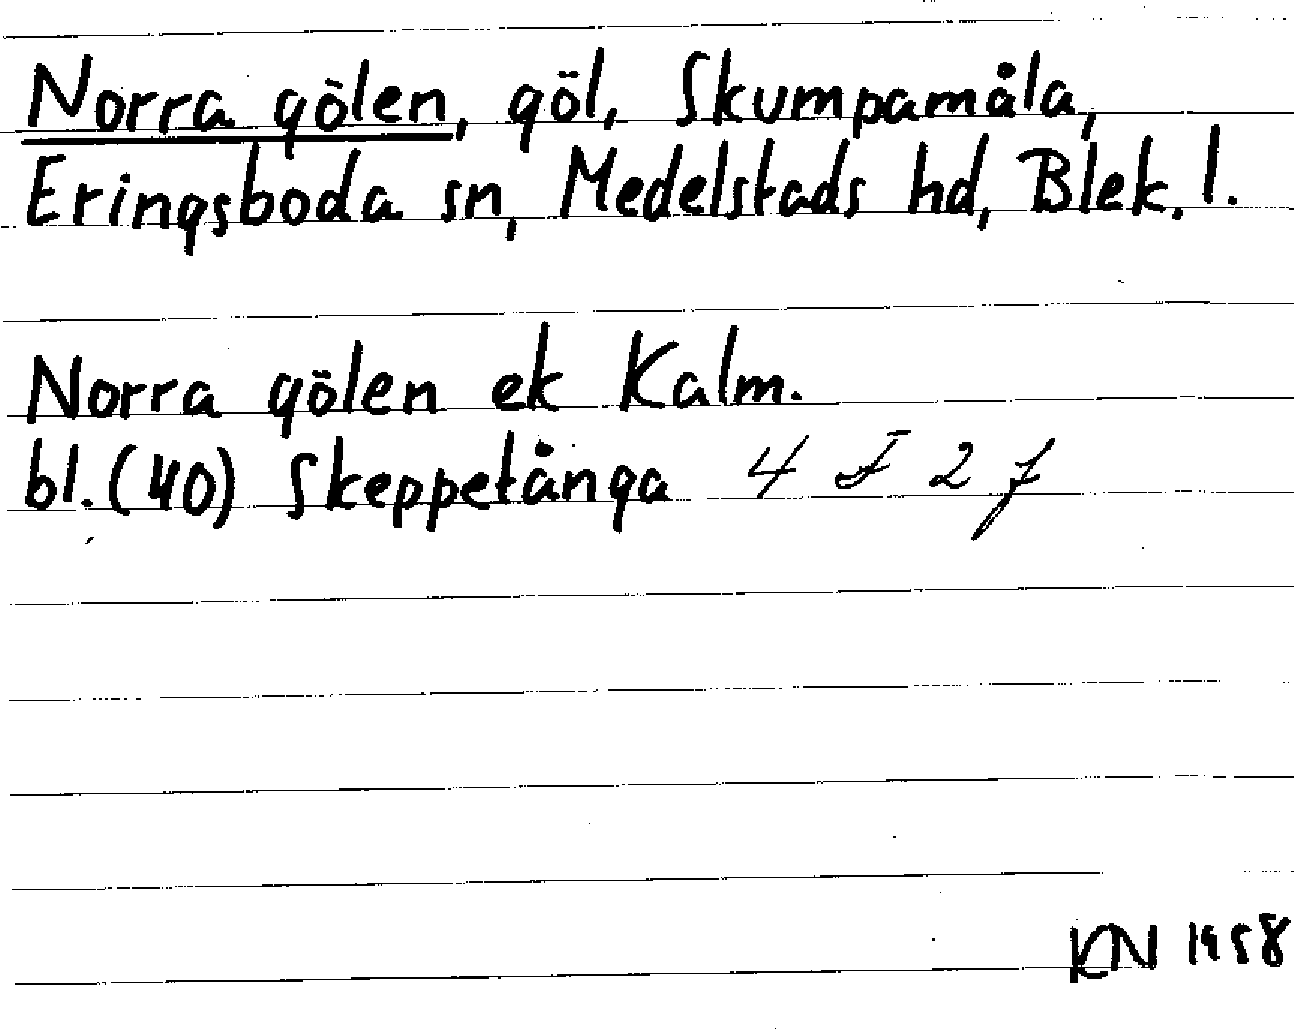 Norra gölen, göl, Skumpamåla,
Eringsboda sn, Medelstads hd, Blek. l.
Norra gölen ek Kalm.
bl. (40) Skeppetånga 4 F 2 f
KN 1958